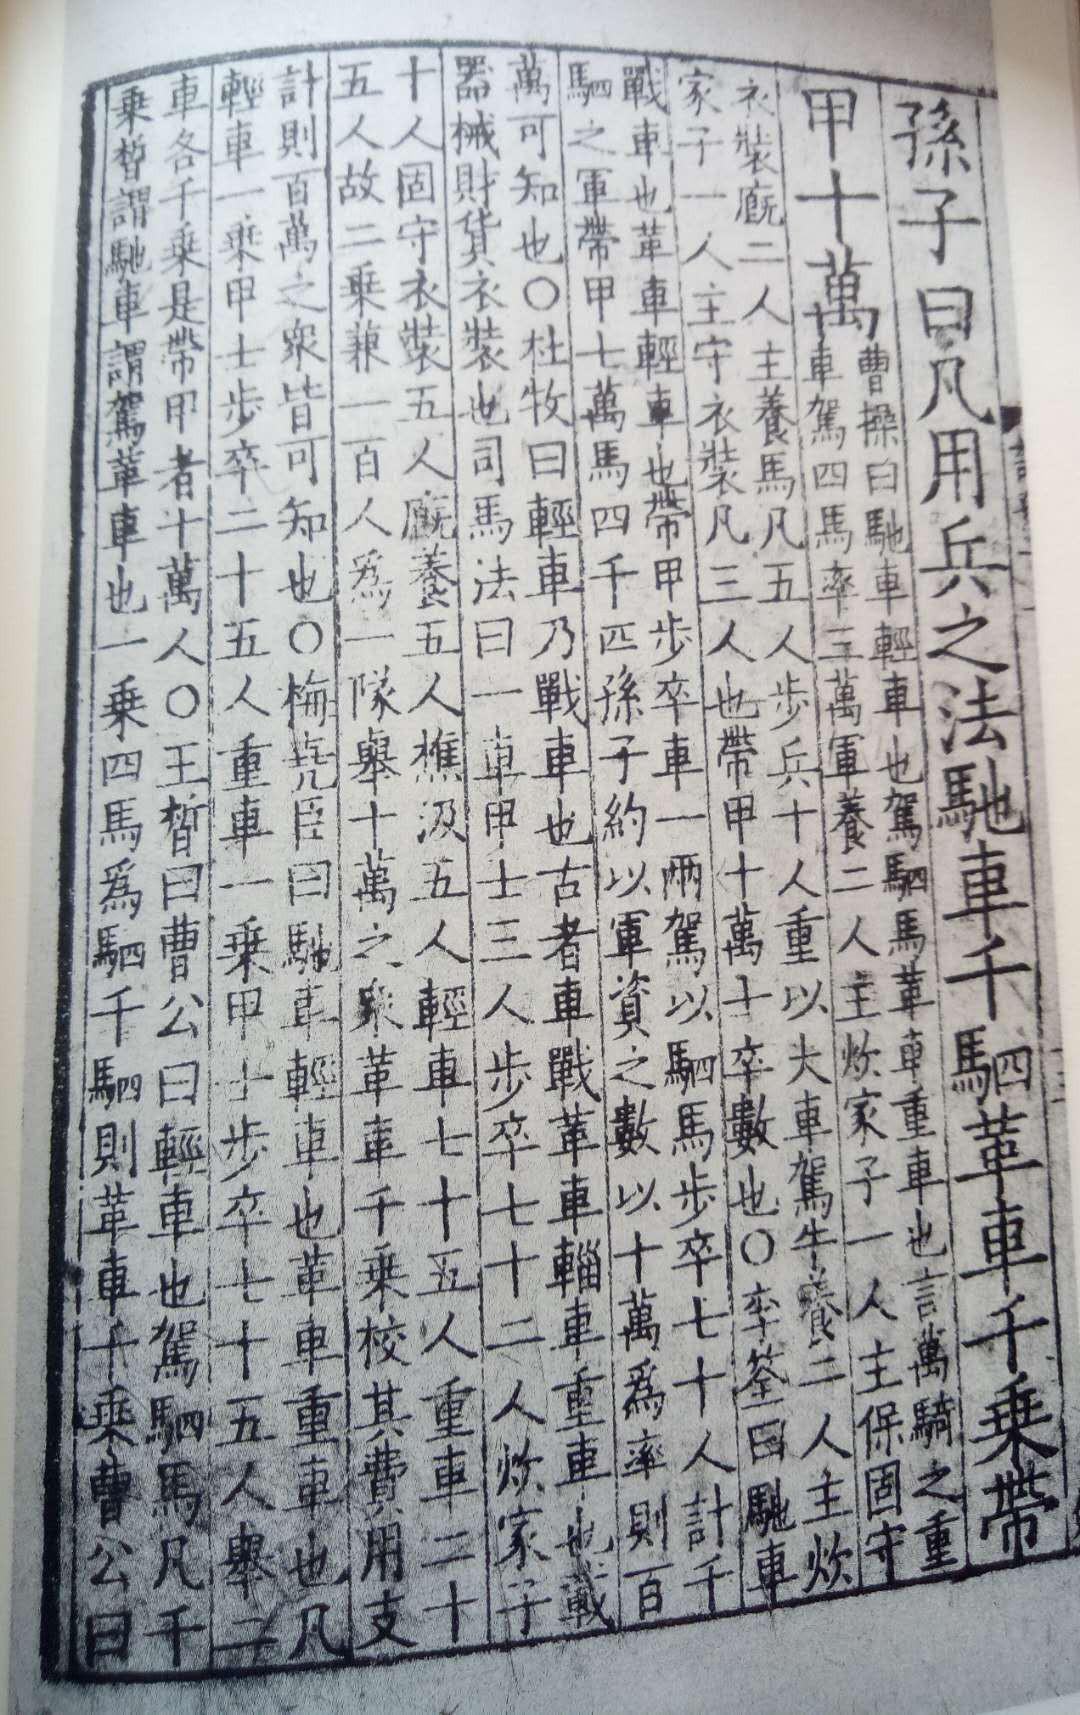 孫子曰凡用兵之法馳車千駟革車千乗帶
甲十萬
曹操曰馳車輕車也駕駟馬革車重車也言萬騎之重
車駕四馬率三萬軍養二人主炊家子一人主保固守
衣裝廐二人主養馬凡五人步兵十人重以大車駕牛養二人主炊
家子一人主守衣裝凡三人也帶甲十萬士卒數也〇李筌曰馳車
戰車也革車輕車也帶甲步卒車一兩駕以駟馬步卒七十人計千
駟之軍帶甲七萬馬四千匹孫子約以軍資之數以十萬爲率則百
萬可知也〇杜牧曰輕車乃戰車也古者車戰革車輜車重車也載
器械財貨衣裝也司馬法曰一車甲士三人步卒七十二人炊家子
十人固守衣裝五人廐養五人樵汲五人輕車七十五人重車二十
五人故二乗兼一百人爲一隊舉十萬之衆革車千乗校其費用支
計則百萬之衆皆可知也〇梅堯臣曰馳車輕車也革車重車也凡
輕車一乗甲士步卒二十五人重車一乗甲士步卒七十五人舉二
車各千乗是帶甲者十萬人〇王晳曰曹公曰輕車也駕駟馬凡千
乗晳謂馳車謂駕革車也一乗四馬爲駟千駟則革車千乗曹公曰